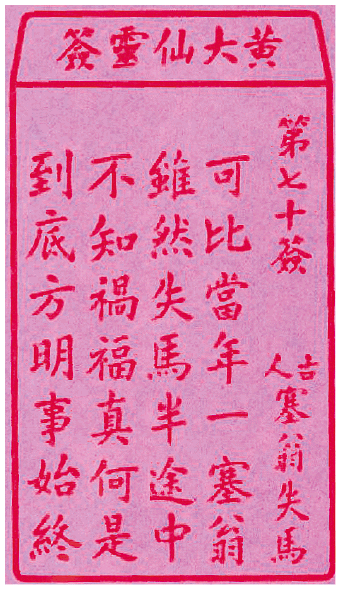 黄大仙靈簽
第七十簽
古人
塞翁失馬
可比當年一塞翁
雖然失馬半途中
不知禍福真何是
到底方明事始終